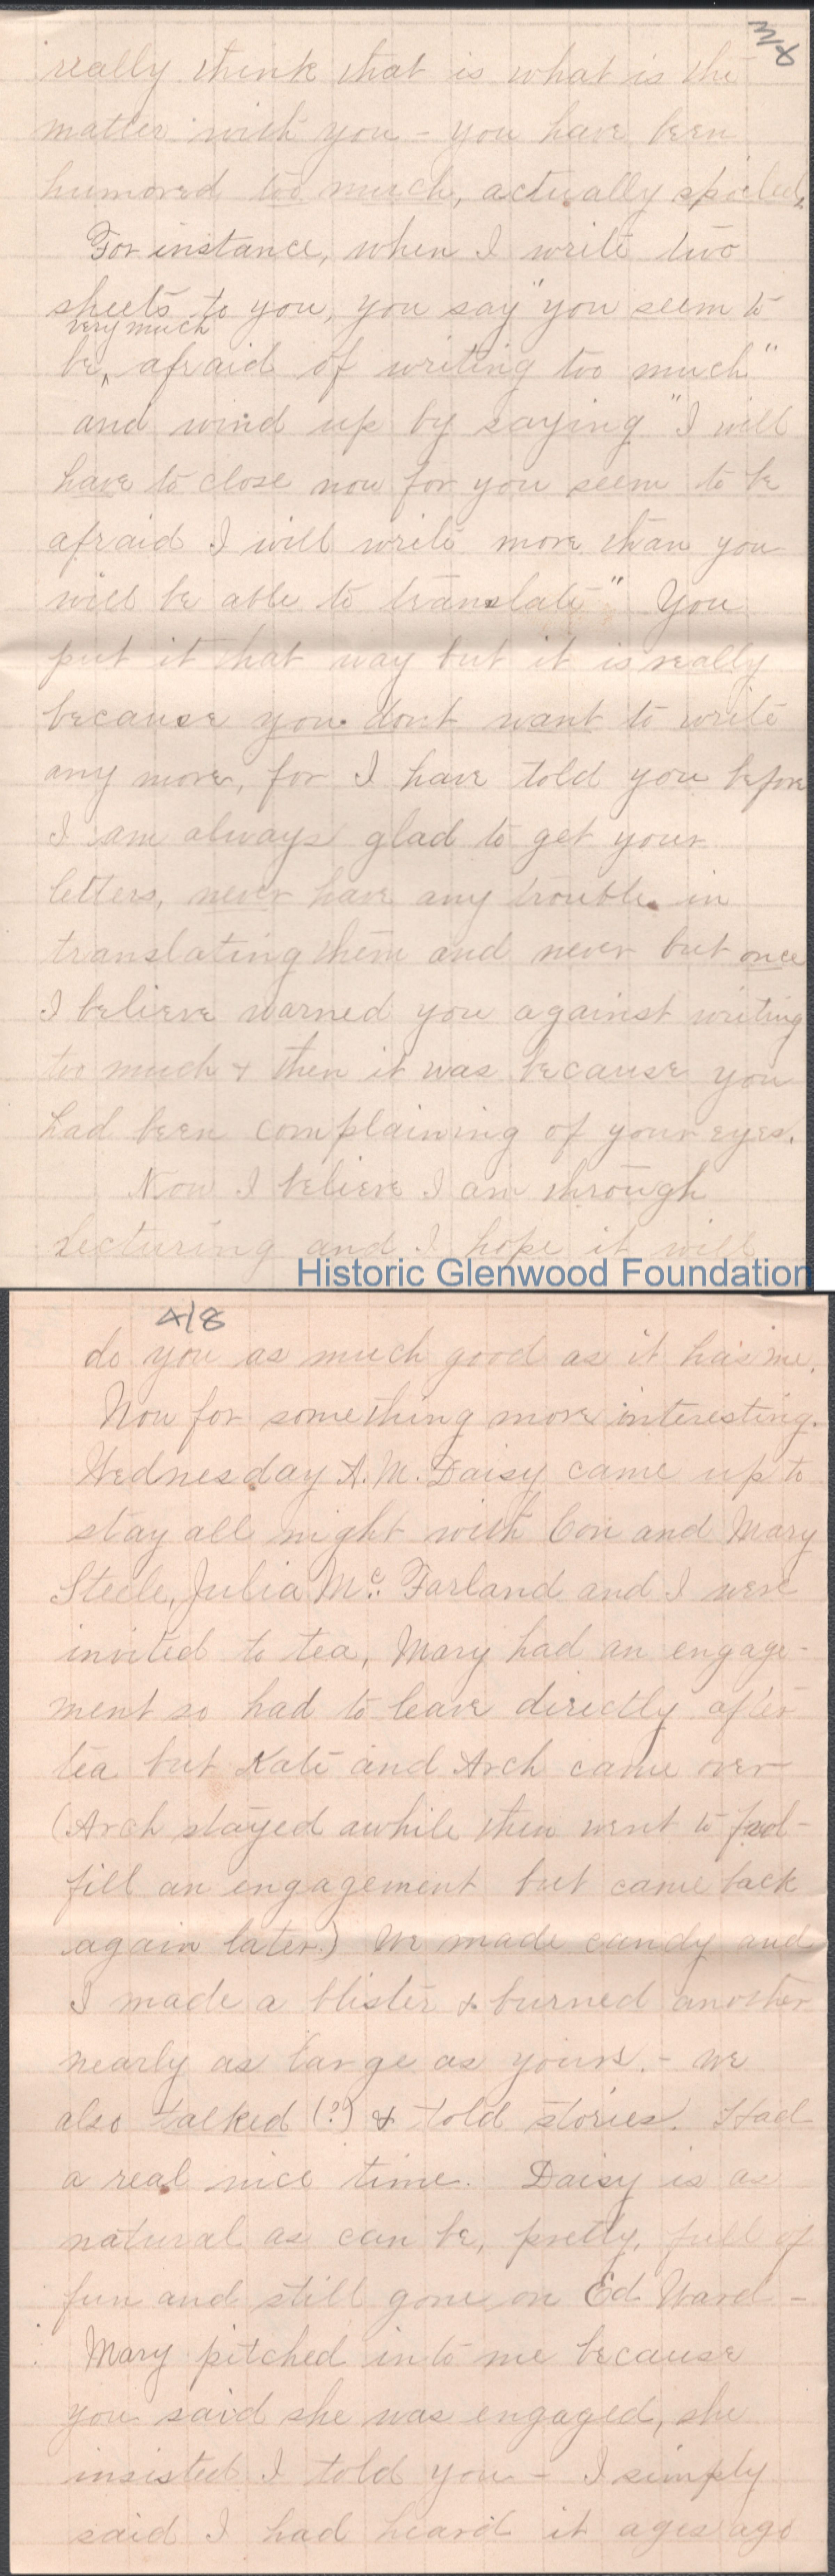 3/8
really think that is what is the
matter with you - you have been
humored too much, actually spoiled.
For instance, when I write two
sheets to you, you say "you seem to
very much
be, afraid of writing too much"
and wind up by saying "I will
have to close now for you seem to be
afraid I will write more than you
will be able to translate" You
put it that way but it is really
because you dont want to write
any more, for I have told you before
I am always glad to get your
letters, never have any trouble in
translating them and never but once
I believe warned you against writing
too much & then it was because you
had been complaining of your eyes.
Now I believe I am through
lecturing and I hope it will
Historic Glenwood Foundation
4/8
do you as much good as it has me.
Now for something more interesting.
Wednesday A.M. Daisy came up to
stay all night with Con and Mary
Steele, Julia Mc. Farland and I were
invited to tea, Mary had an engage-
ment so had to leave directly after
tea but Kate and Arch came over
(Arch stayed awhile then went to ful-
fill an engagement but came back
again later.) We made candy and
I made a blister & burned another
nearly as large as yours. - we
also talked (??) & told stories. Had
a real nice time. Daisy is as
natural as can be, pretty, full of
fun and still gone on Ed Ward -
Mary pitched into me because
you said she was engaged, she
insisted I told you - I simply
said I had heard it ages ago